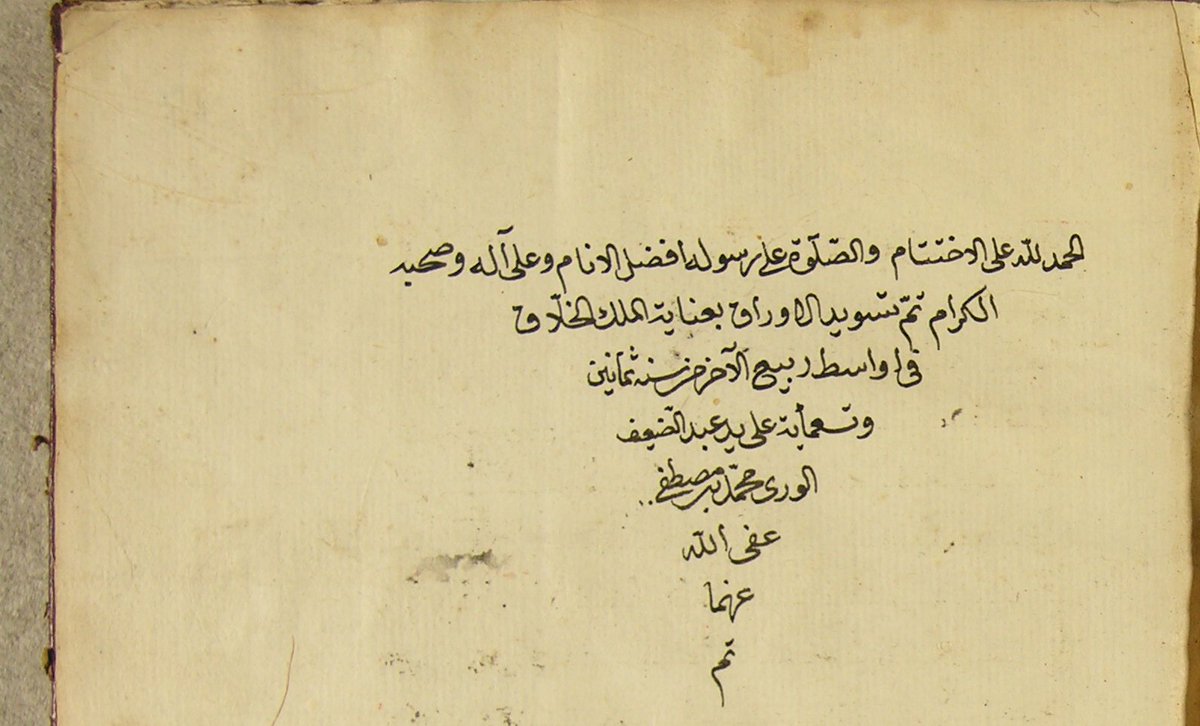 الحمد لله على الاختتام والصّلوة على رسوله افضل الانام وعلى آله وصحبه
الكرام تمّ تسويد الاوراق بعناية الملك الخلّاق
فى اواسط ربيع الآخر من سنه ثمانين
وتسعمأية على يد عبد الضّعيف
الورى محمّد بن مصطفى
عفى الله
عنهما
تم